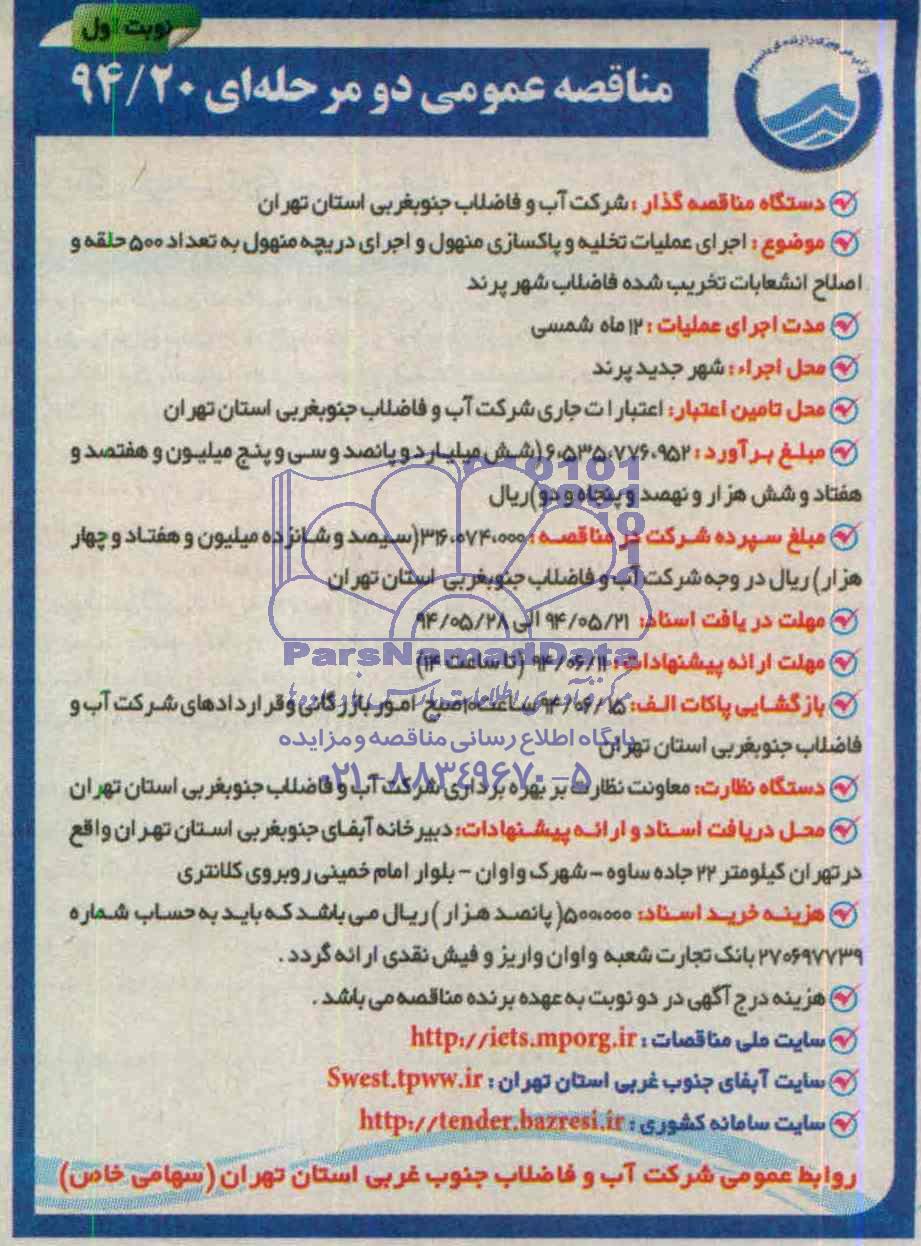 نوبت اول
مناقصه عمومی دو مرحله‌ای ۹۴/۲۰
دستگاه مناقصه گذار : شرکت آب و فاضلاب جنوبغربی استان تهران
موضوع : اجرای عملیات تخلیه و پاکسازی منهول و اجرای دریچه منهول به تعداد ۵۰۰ حلقه و
اصلاح انشعابات تخریب شده فاضلاب شهر پرند
مدت اجرای عملیات : ۱۲ ماه شمسی
محل اجراء : شهر جدید پرند
محل تامین اعتبار: اعتبارات جاری شرکت آب و فاضلاب جنوبغربی استان تهران
مبلغ برآورد : ۶،۵۳۵،۷۷۶،۹۵۲ (شش میلیارد و پانصد و سی و پنج میلیون و هفتصد و
هفتاد و شش هزار و نهصد و پنجاه و دو) ریال
مبلغ سپرده شرکت در مناقصه : ۳۱۶،۰۷۴،۰۰۰ (سیصد و شانزده میلیون و هفتاد و چهار
هزار) ریال در وجه شرکت آب و فاضلاب جنوبغربی استان تهران
مهلت دریافت اسناد: ۹۴/۰۵/۲۱ الی ۹۴/۰۵/۲۸
مهلت ارائه پیشنهادات : ۹۴/۰۶/۱۱ (تا ساعت ۱۴)
ParsNamadData
بازگشایی پاکات الف: ۹۴/۰۶/۱۵ ساعت ۱۰ صبح امور بازرگانی و قراردادهای شرکت آب و
فاضلاب جنوبغربی استان تهران
پایگاه اطلاع رسانی مناقصه و مزایده
۰۲۱-۸۸۳۴۹۶۷۰-۵
دستگاه نظارت: معاونت نظارت بر بهره برداری شرکت آب و فاضلاب جنوبغربی استان تهران
محل دریافت اسناد و ارائه پیشنهادات: دبیرخانه آبفای جنوبغربی استان تهران واقع
در تهران کیلومتر ۲۲ جاده ساوه - شهرک واوان - بلوار امام خمینی روبروی کلانتری
هزینه خرید اسناد: ۵۰۰،۰۰۰ (پانصد هزار) ریال می باشد که باید به حساب شماره
۲۷۰۶۹۷۷۳۹ بانک تجارت شعبه واوان واریز و فیش نقدی ارائه گردد .
هزینه درج آگهی در دو نوبت به عهده برنده مناقصه می باشد .
سایت ملی مناقصات : http://iets.mporg.ir
سایت آبفای جنوب غربی استان تهران : Swest.tpww.ir
سایت سامانه کشوری : http://tender.bazresi.ir
روابط عمومی شرکت آب و فاضلاب جنوب غربی استان تهران (سهامی خاص)